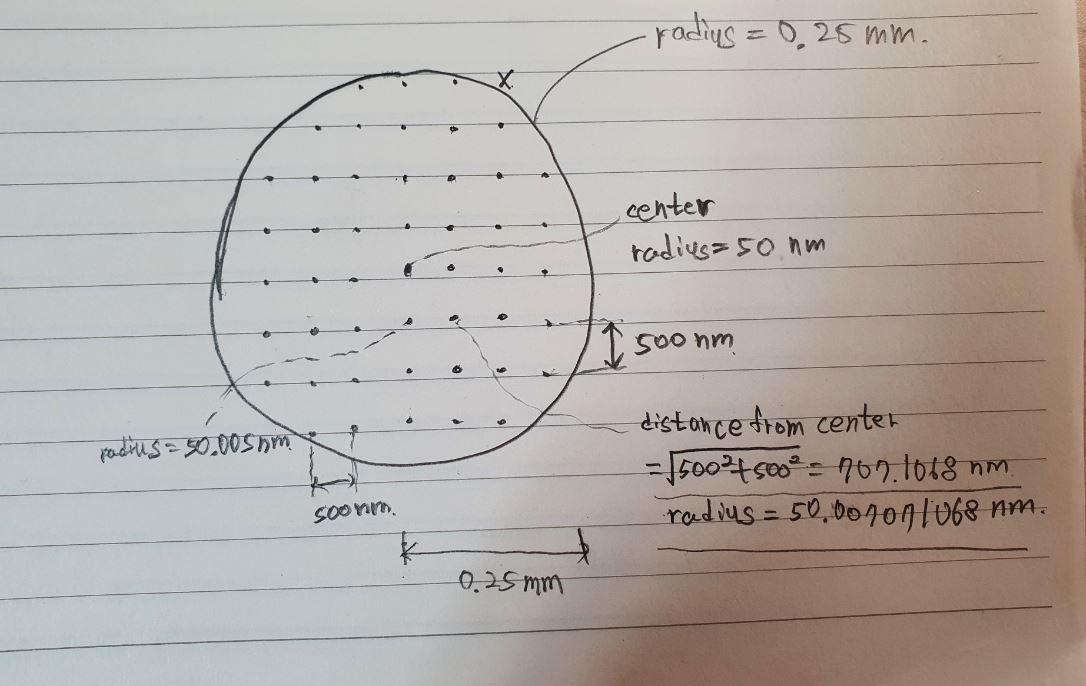 radius = 0.25 mm.
X
center
radius = 50 nm
500 nm
radius = 50.005 nm
500 nm.
distance from center
= √500²+500² = 707.1068 nm
radius = 50.007071068 nm.
0.25 mm